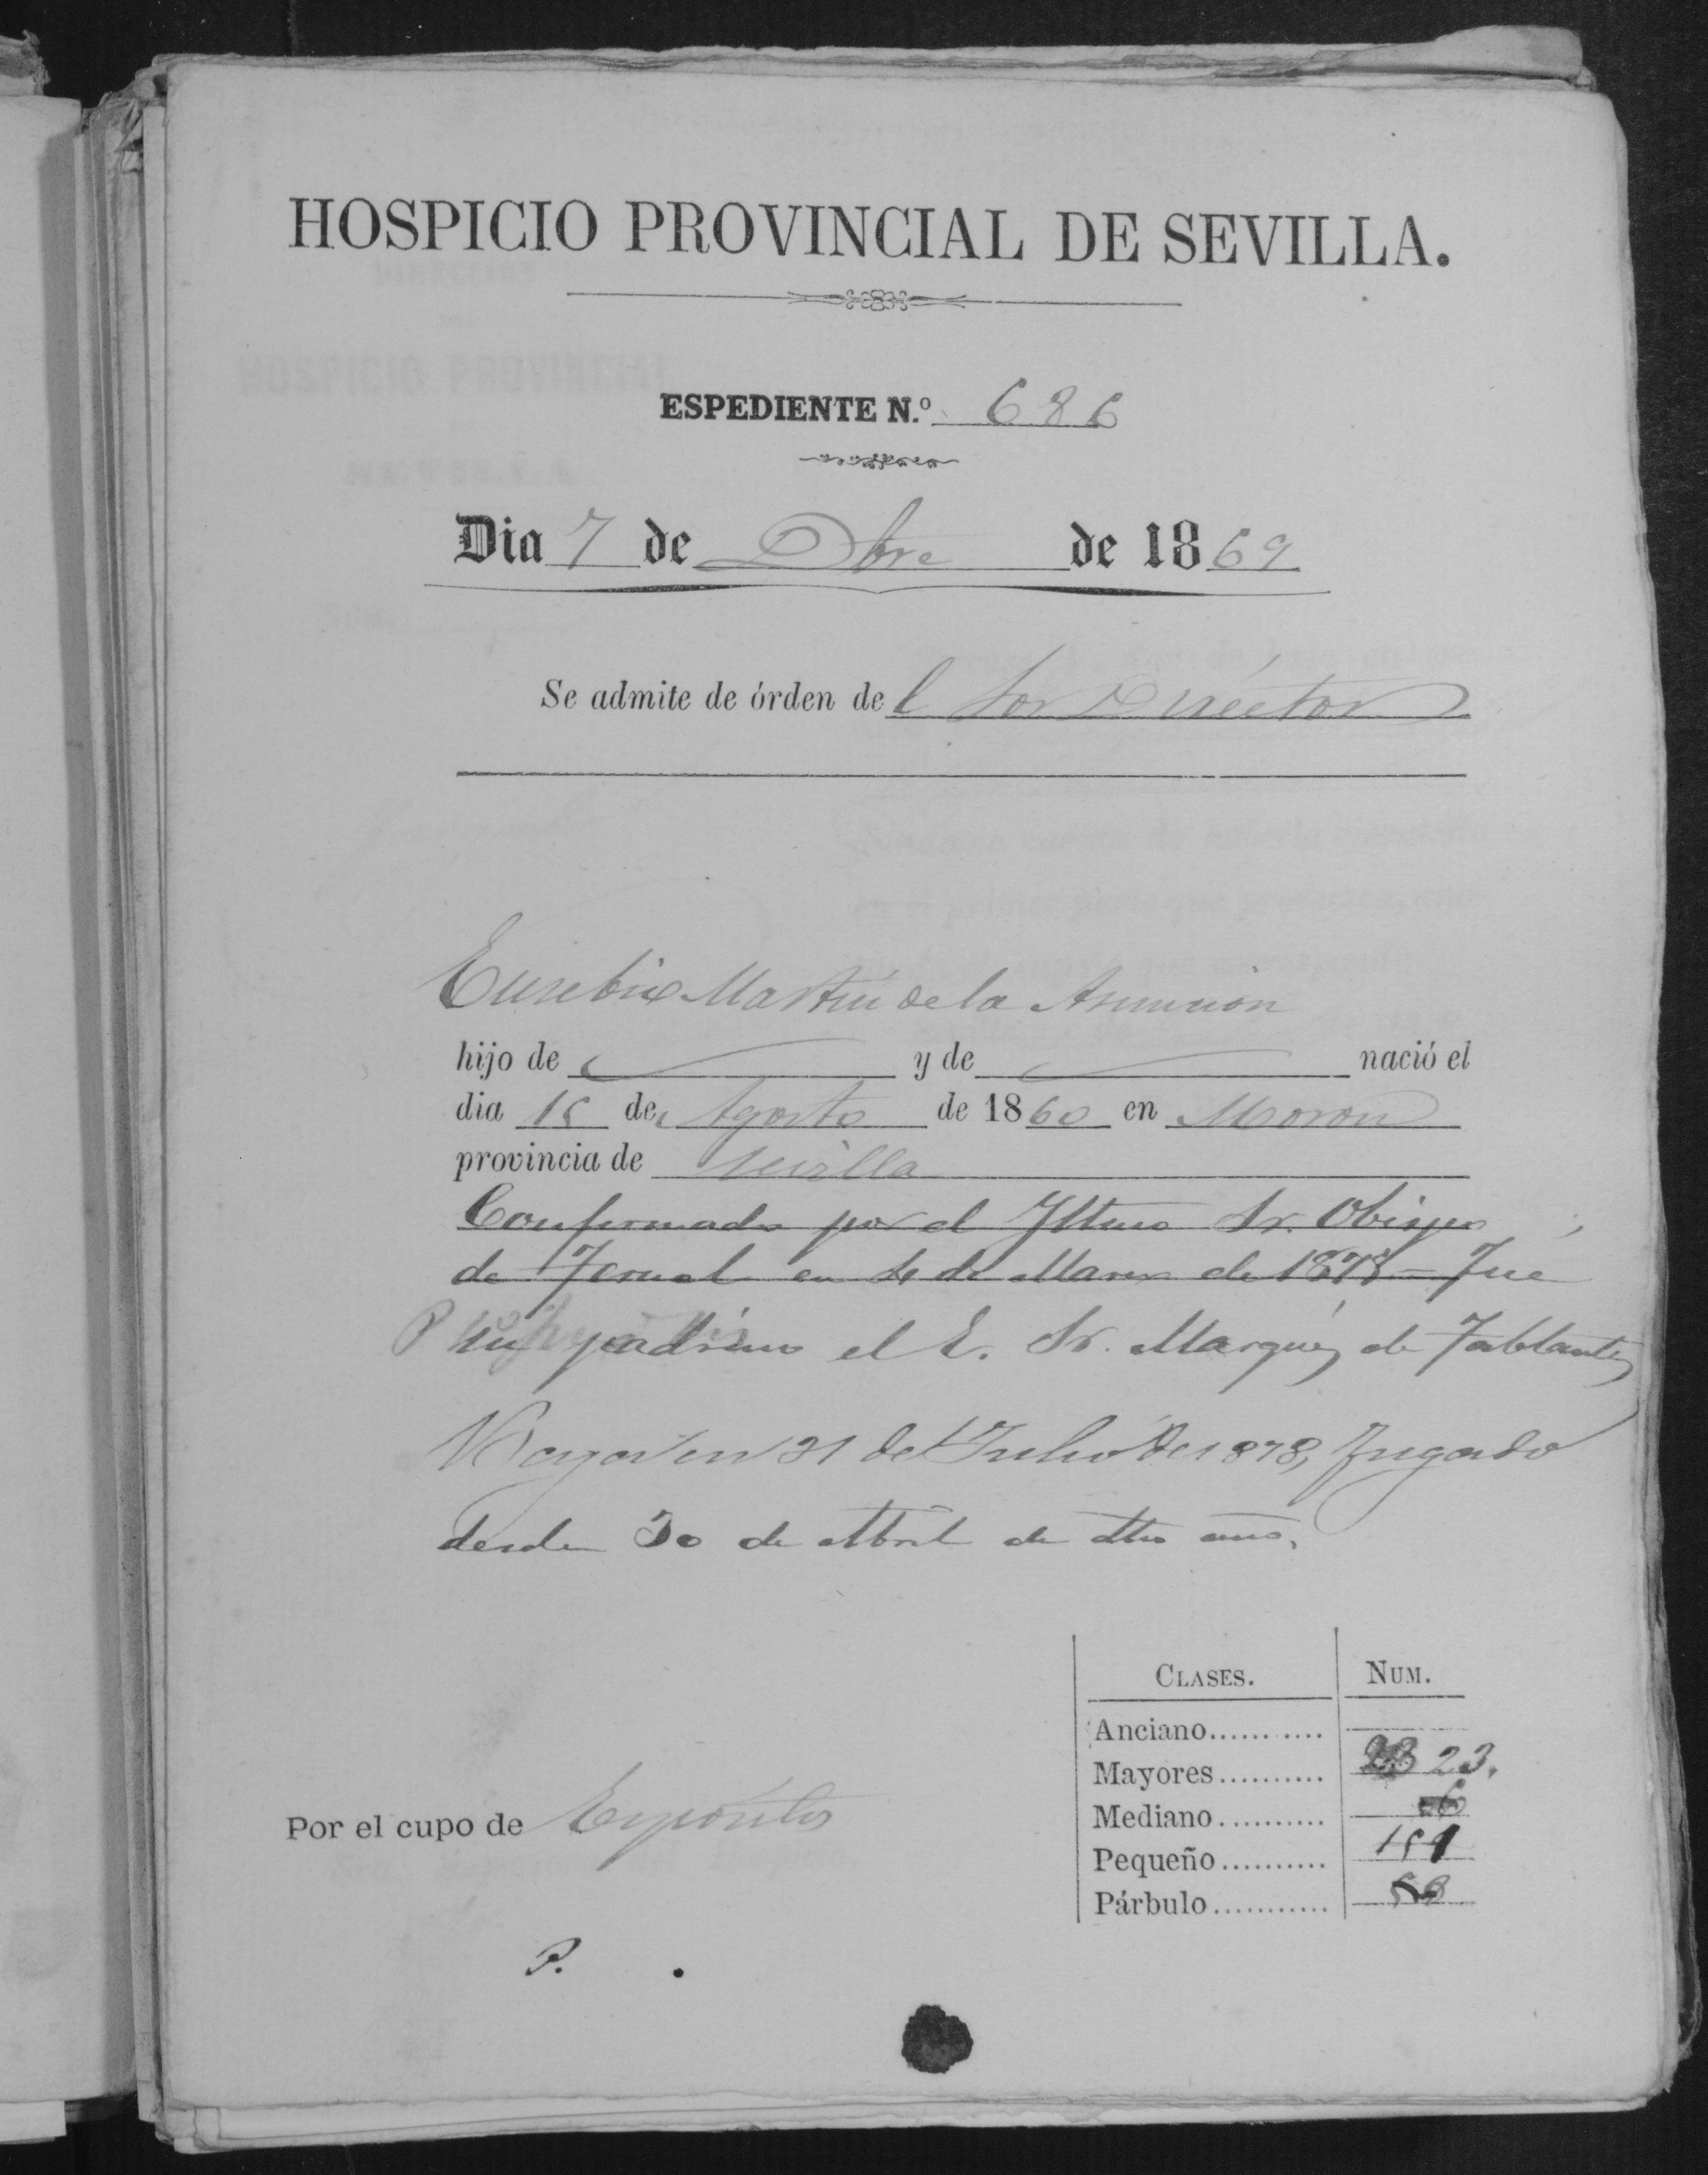 HOSPICIO PROVINCIAL DE SEVILLA.
ESPEDIENTE N.º 686
Dia 7 de Dbre de 1869
Se admite de órden del Sor Director
Eusebio Martin de la Asuncion
hijo de y de nació el
dia 15 de Agosto de 1860 en Moron
provincia de Sevilla
Confirmado por el Iltmo Sr. Obispo
de Teruel en 4 de Marzo de 1878 = Fué
su padrino el E. Sr. Marqués de Tablantes
Mayor en 21 de Julio de 1878, fugado
desde 30 de Abril de dho año.
CLASES. NUM.
Anciano...........
Mayores.......... 23.
Mediano.......... 6
Pequeño.......... 151
Párbulo........... 58
Por el cupo de Espósitos
P.